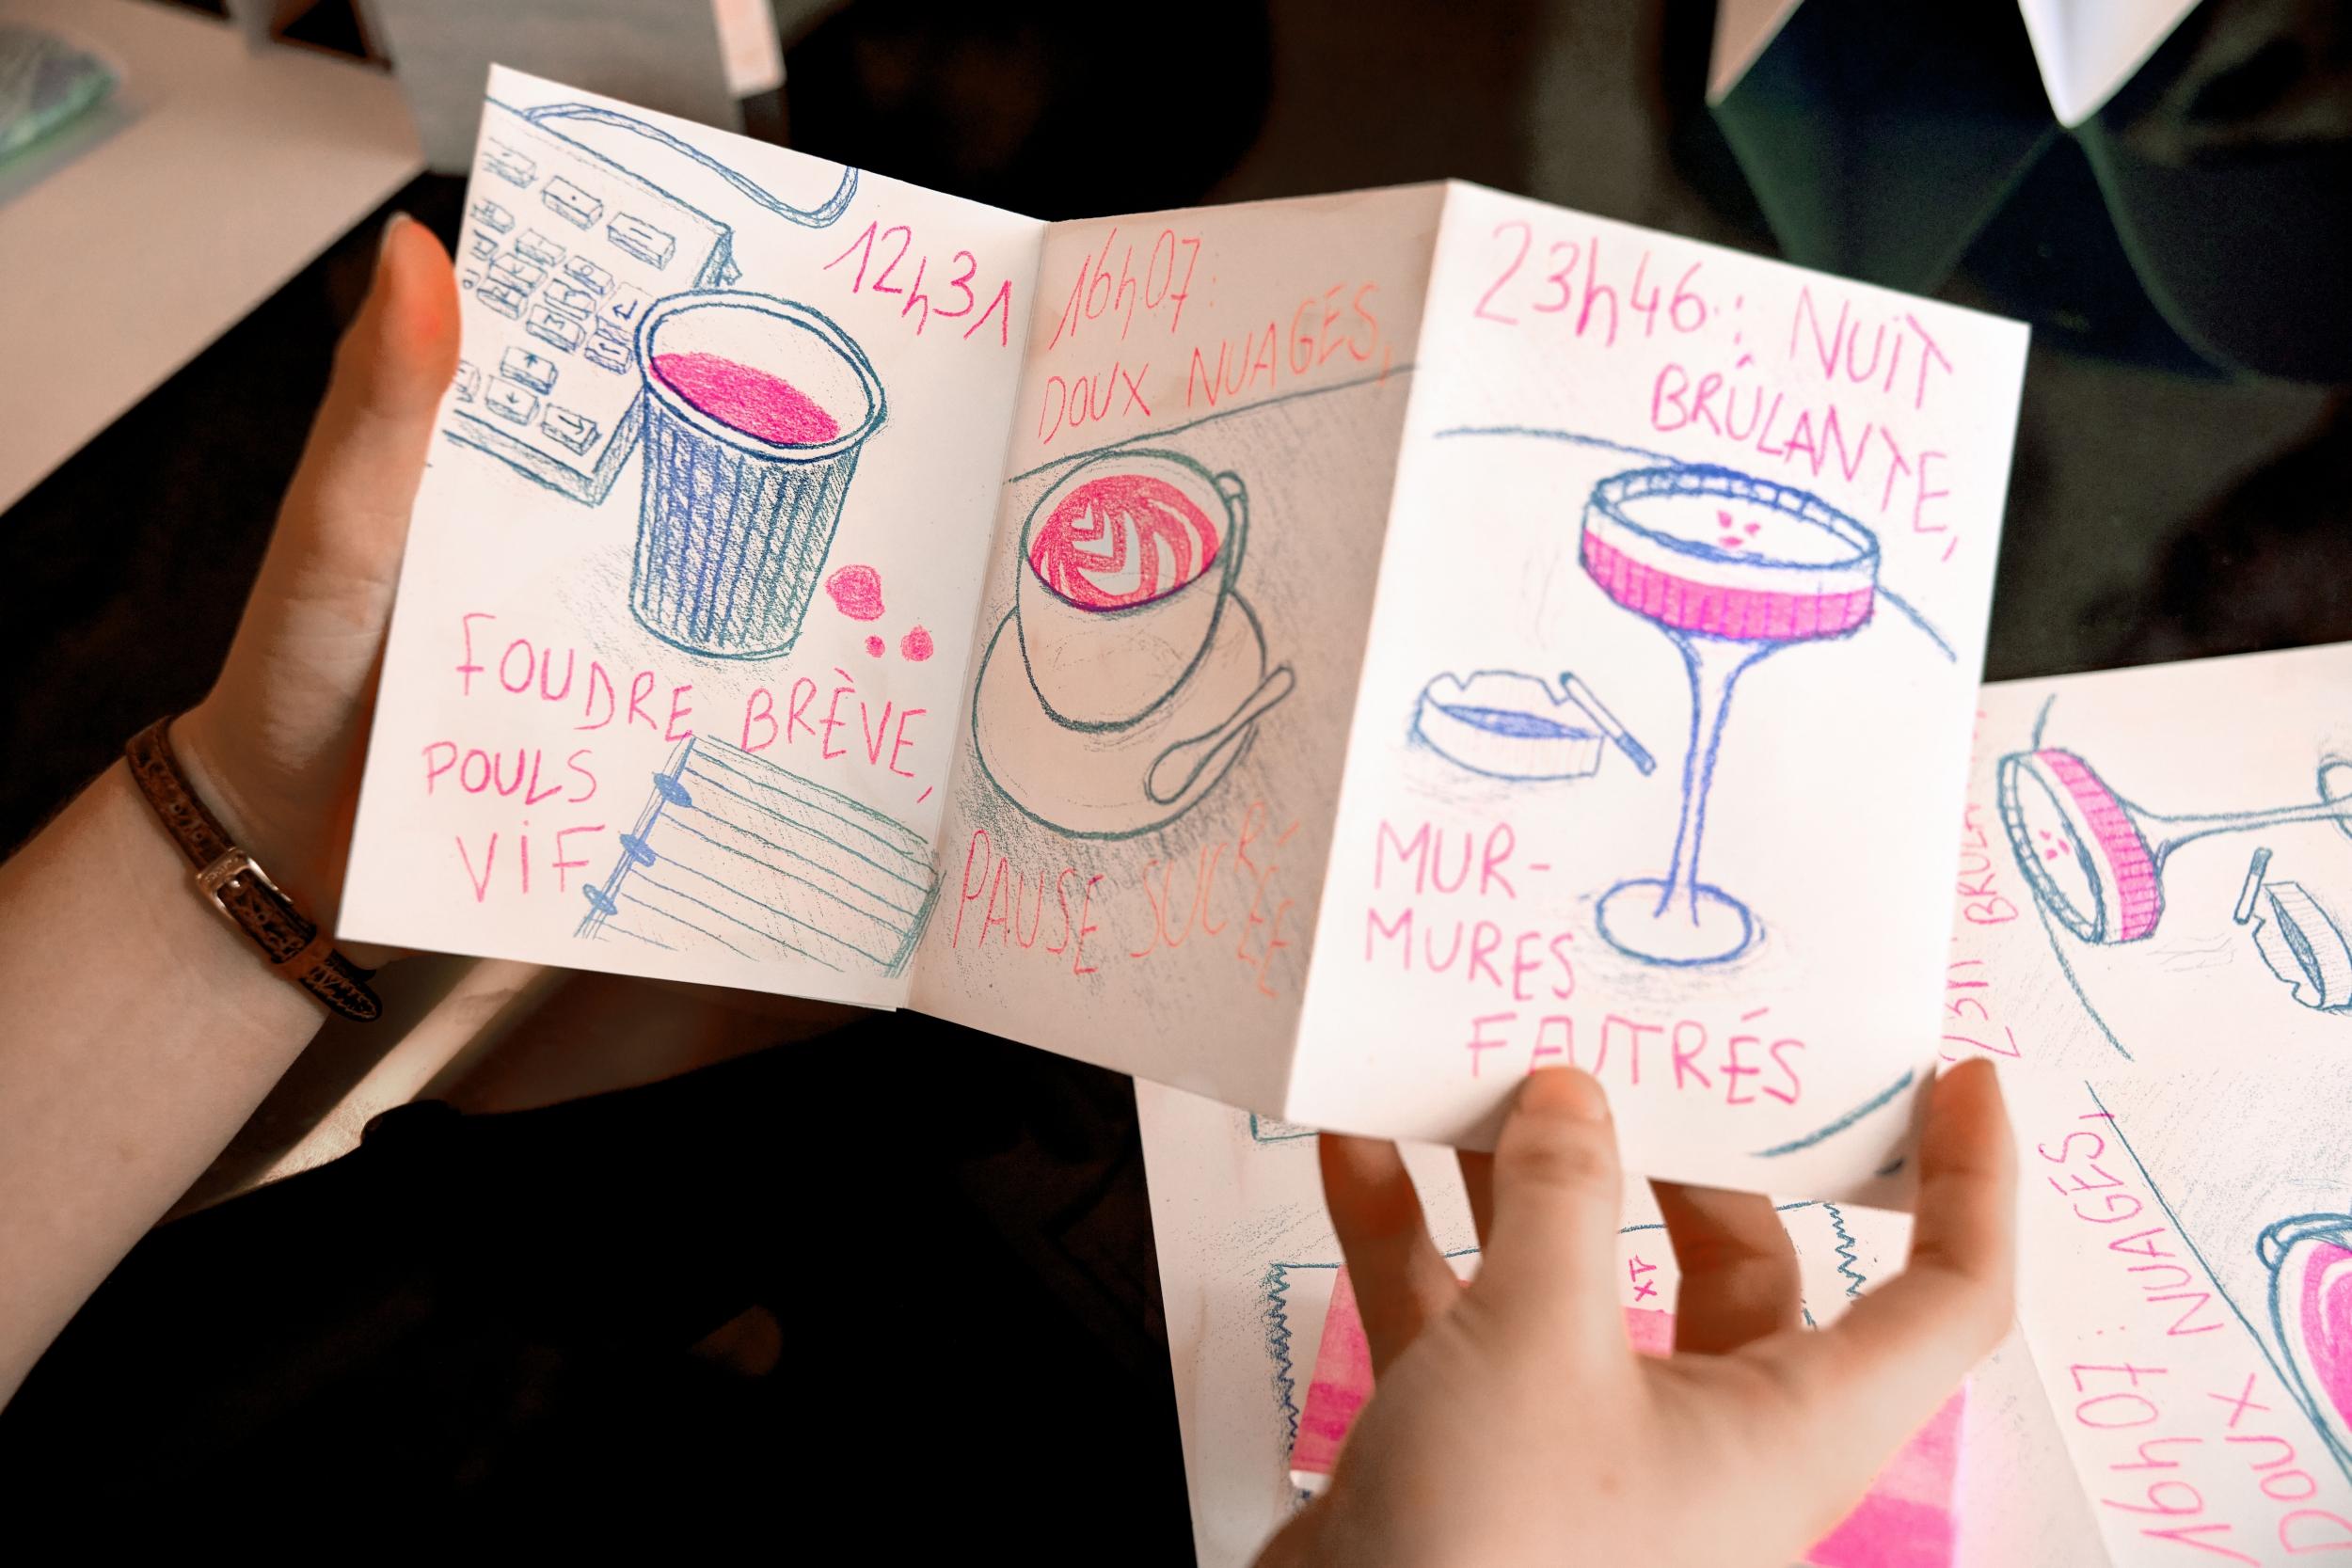 12h31
FOUDRE BRÈVE,
POULS
VIF
16h07:
DOUX NUAGES,
PAUSE SUCRÉE
23h46: NUIT
BRÛLANTE,
MUR-
MURES
FEUTRÉS
16h07: NUAGES,
DOUX